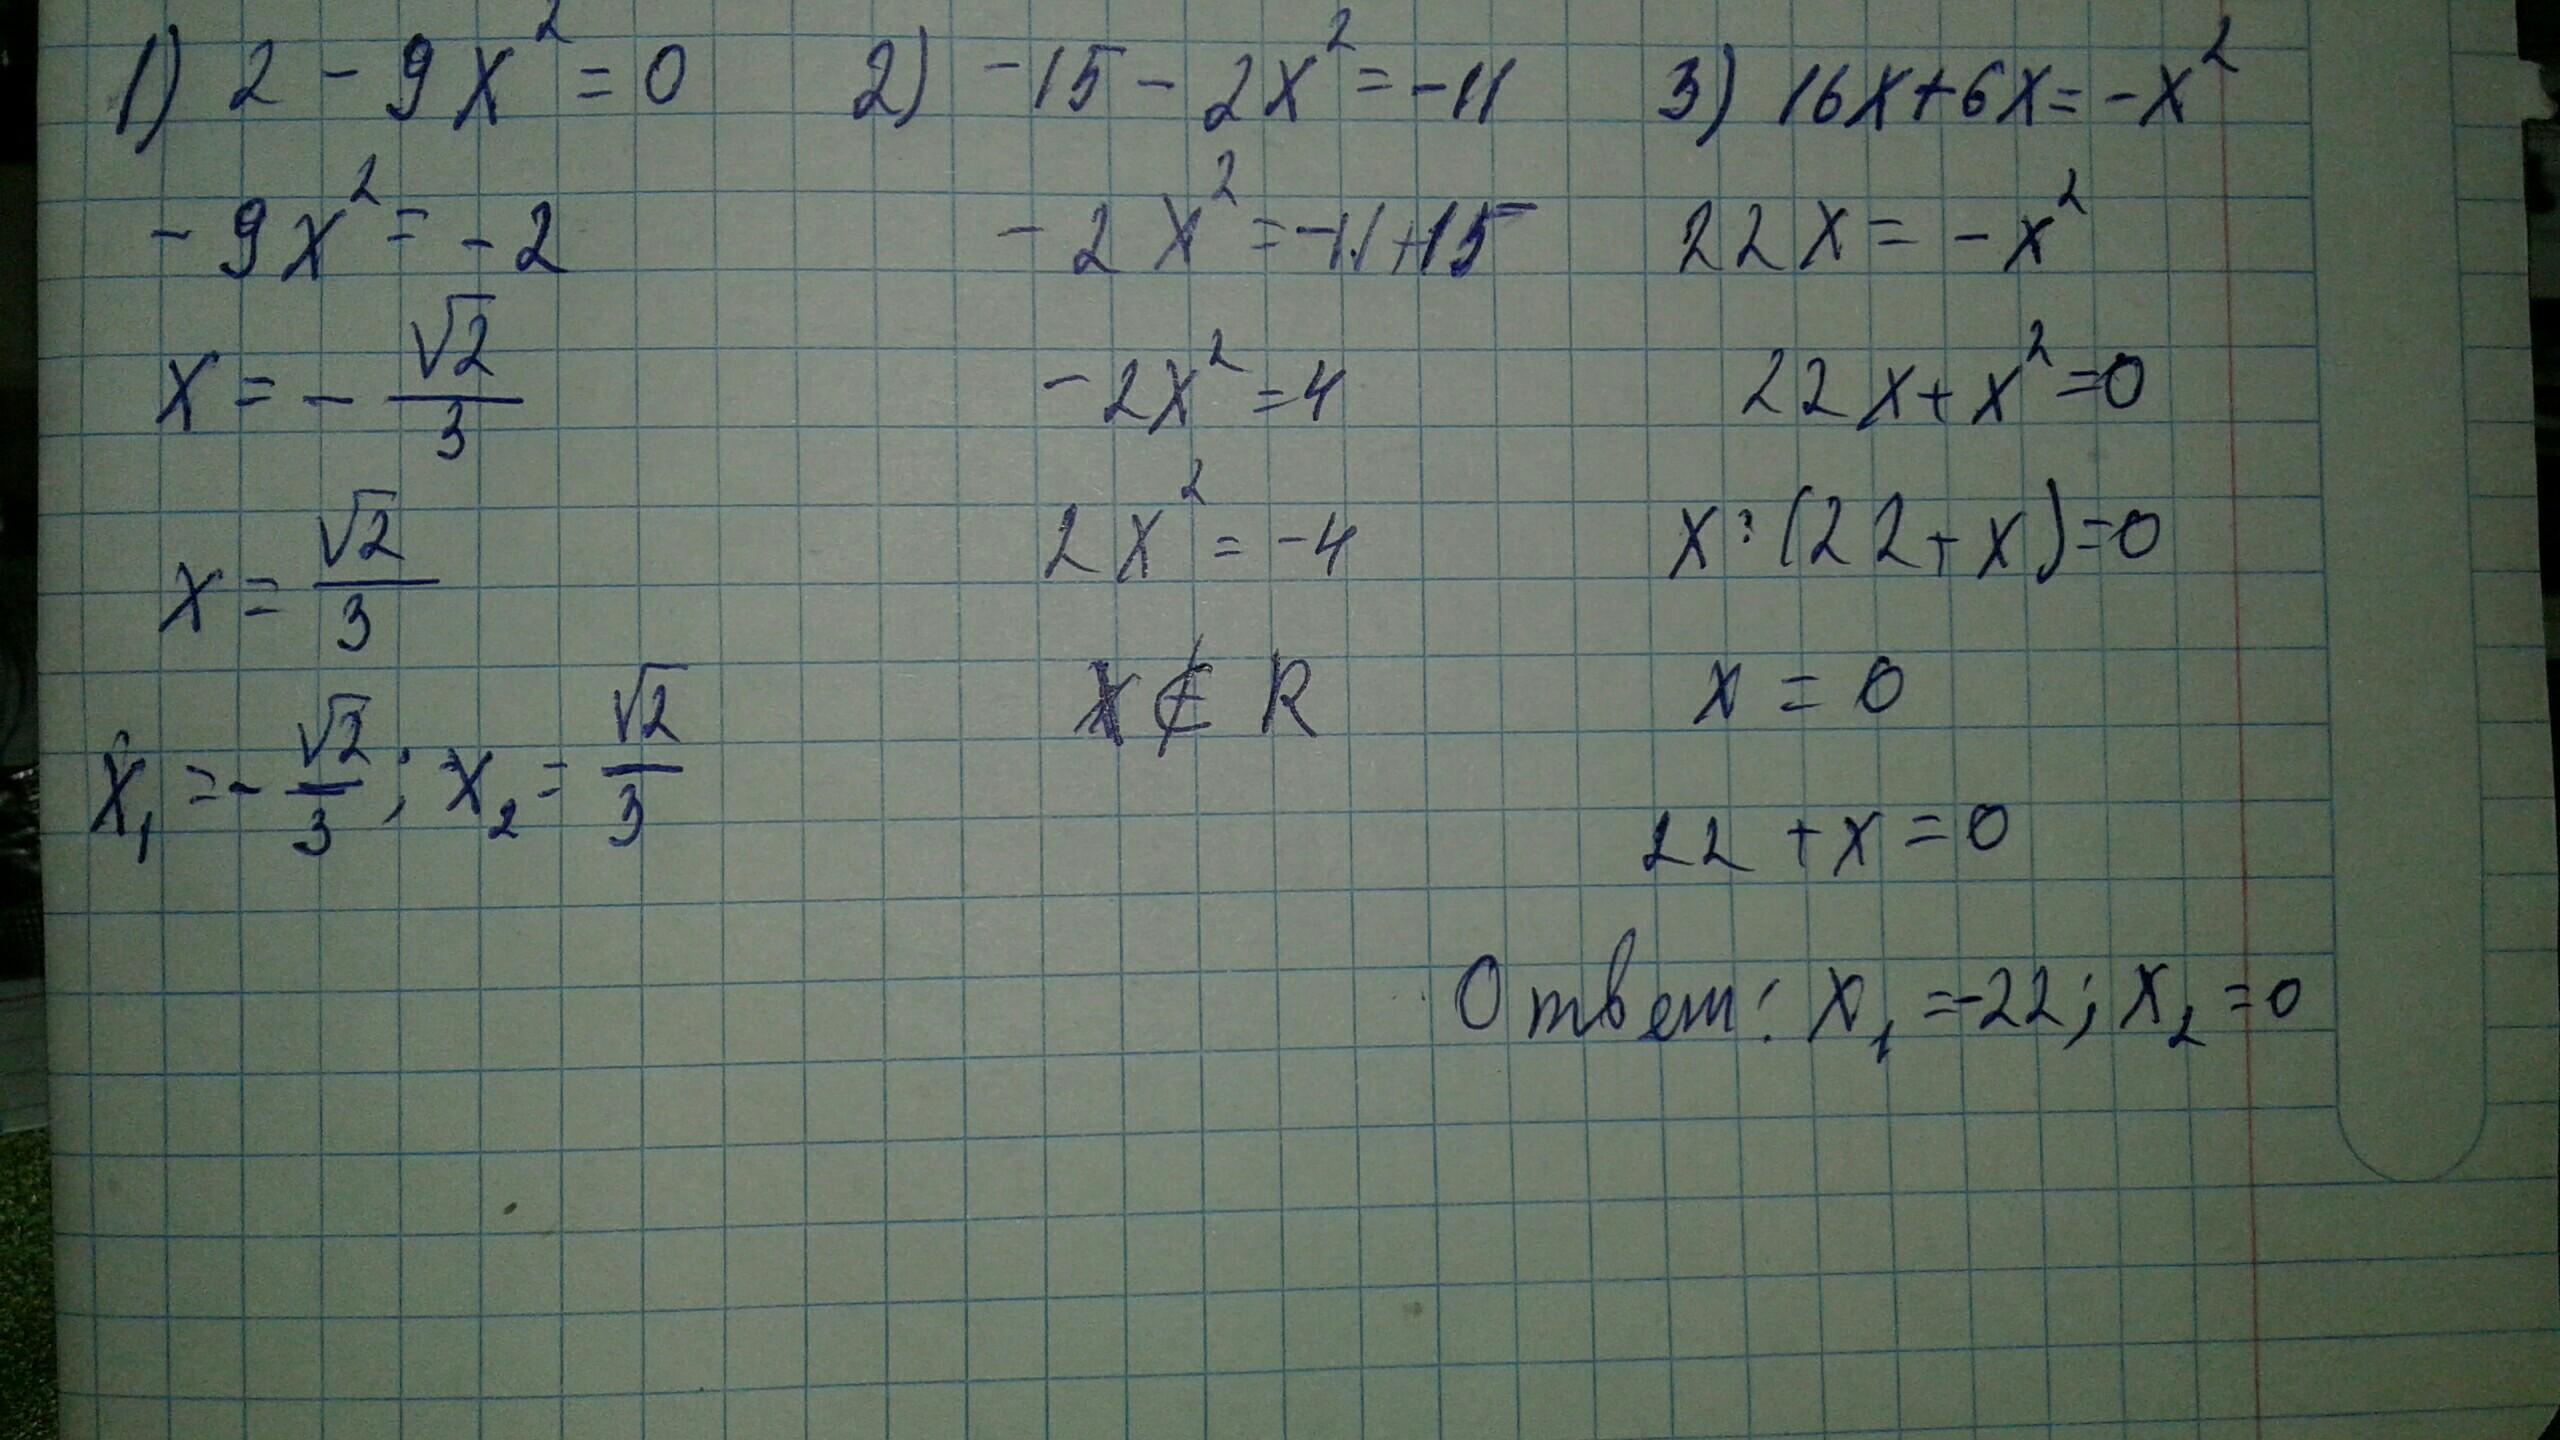 1) 2 - 9x² = 0
-9x² = -2
x = - √2/3
x = √2/3
x₁ = - √2/3; x₂ = √2/3
2) -15 - 2x² = -11
-2x² = -11+15
-2x² = 4
2x² = -4
x ∉ R
3) 16x+6x = -x²
22x = -x²
22x + x² = 0
x : (22 + x) = 0
x = 0
22 + x = 0
Ответ: x₁ = -22; x₂ = 0